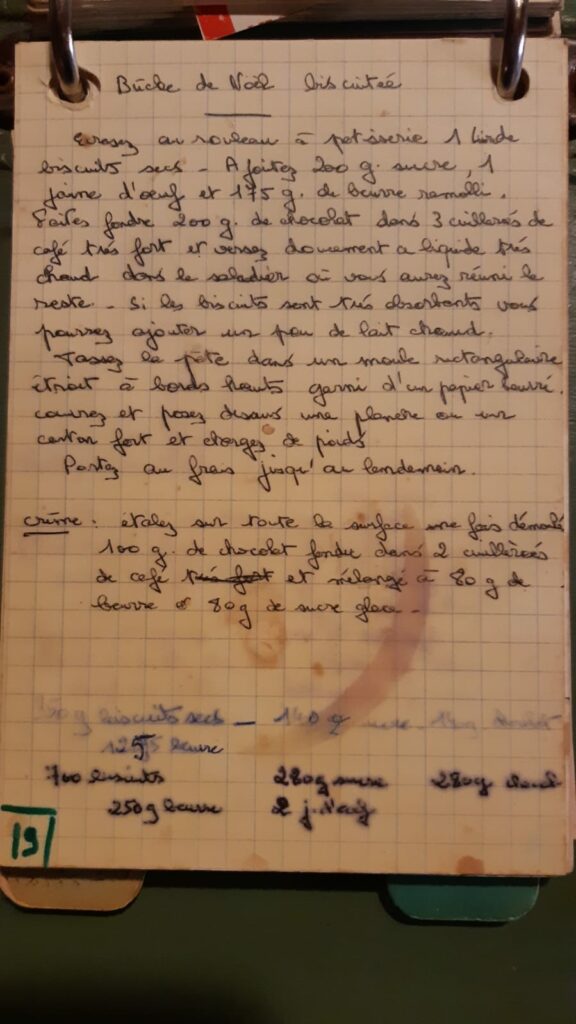 Bûche de Noël biscuitée
Ecrasez au rouleau à patisserie 1 livre de
biscuits secs - Ajoitez 200 g. sucre, 1
jaune d'oeuf et 175 g. de beurre ramolli.
Faites fondre 200 g. de chocolat dans 3 cuillerées de
café très fort et versez doucement ce liquide très
chaud dans le saladier où vous aurez réuni le
reste - Si les biscuits sont très absorbants vous
pourrez ajouter un peu de lait chaud.
Tassez la pâte dans un moule rectangulaire
étroit à bords hauts garni d'un papier beurré.
couvrez et posez dessus une planche ou un
carton fort et chargez de poids
Portez au frais jusqu'au lendemain.
crème : étalez sur toute la surface une fois démoulé
100 g. de chocolat fondu dans 2 cuillèrées
de café très fort et mélangé à 80 g de
beurre et 80g de sucre glace -
350g biscuits secs - 140 g sucre - 140g chocolat
125 beurre
700 biscuits 280g sucre 280g choc
250g beurre 2 j. d'oeuf
19